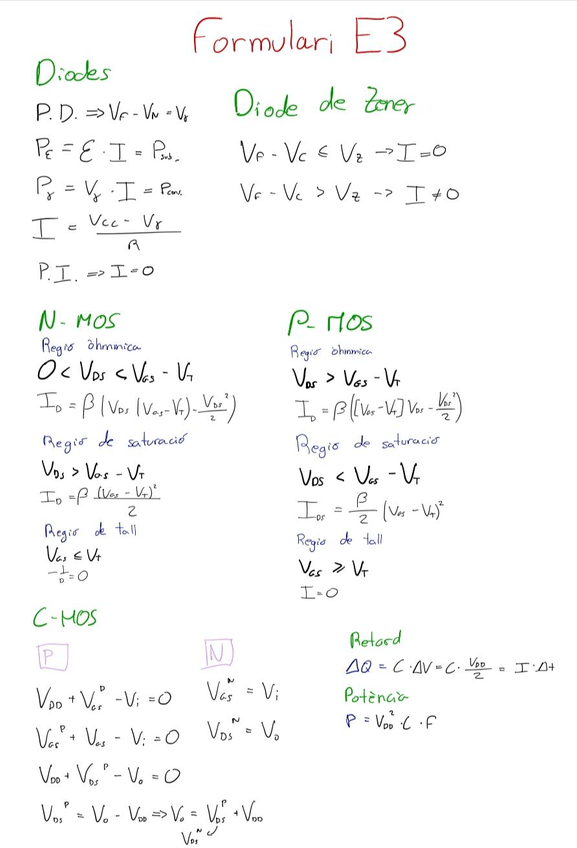 Formulari E3
Diodes
P.D. ⇒ V_F - V_N = V_γ
P_E = ε · I = P_sub.
P_γ = V_γ · I = P_cons.
I = (V_CC - V_γ) / R
P.I. => I = 0
Diode de Zener
V_F - V_C ≤ V_Z -> I = 0
V_F - V_C > V_Z -> I ≠ 0
N-MOS
Regio òhmnica
0 < V_DS < V_GS - V_T
I_D = β (V_DS (V_GS - V_T) - V_DS²/2)
Regio de saturació
V_DS > V_GS - V_T
I_D = β (V_GS - V_T)²/2
Regio de tall
V_GS ≤ V_T
I_D = 0
P-MOS
Regio òhnmica
V_DS > V_GS - V_T
I_D = β ([V_GS - V_T] V_DS - V_DS²/2)
Regio de saturacio
V_DS < V_GS - V_T
I_DS = β/2 (V_GS - V_T)²
Regio de tall
V_GS ≥ V_T
I = 0
C-MOS
P
V_DD + V_GS^P - V_i = 0
V_GS^P + V_GS - V_i = 0
V_DD + V_DS^P - V_o = 0
V_DS^P = V_o - V_DD => V_o = V_DS^P + V_DD
V_DS^N
N
V_GS^N = V_i
V_DS^N = V_o
Retard
ΔQ = C · ΔV = C · V_DD/2 = I · Δt
Potència
P = V_DD² · C · F